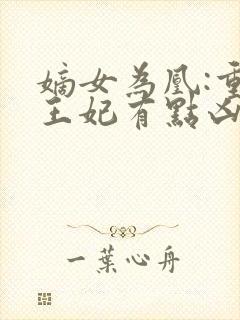 嫡女為凰:重
王妃有點凶
一葉心舟